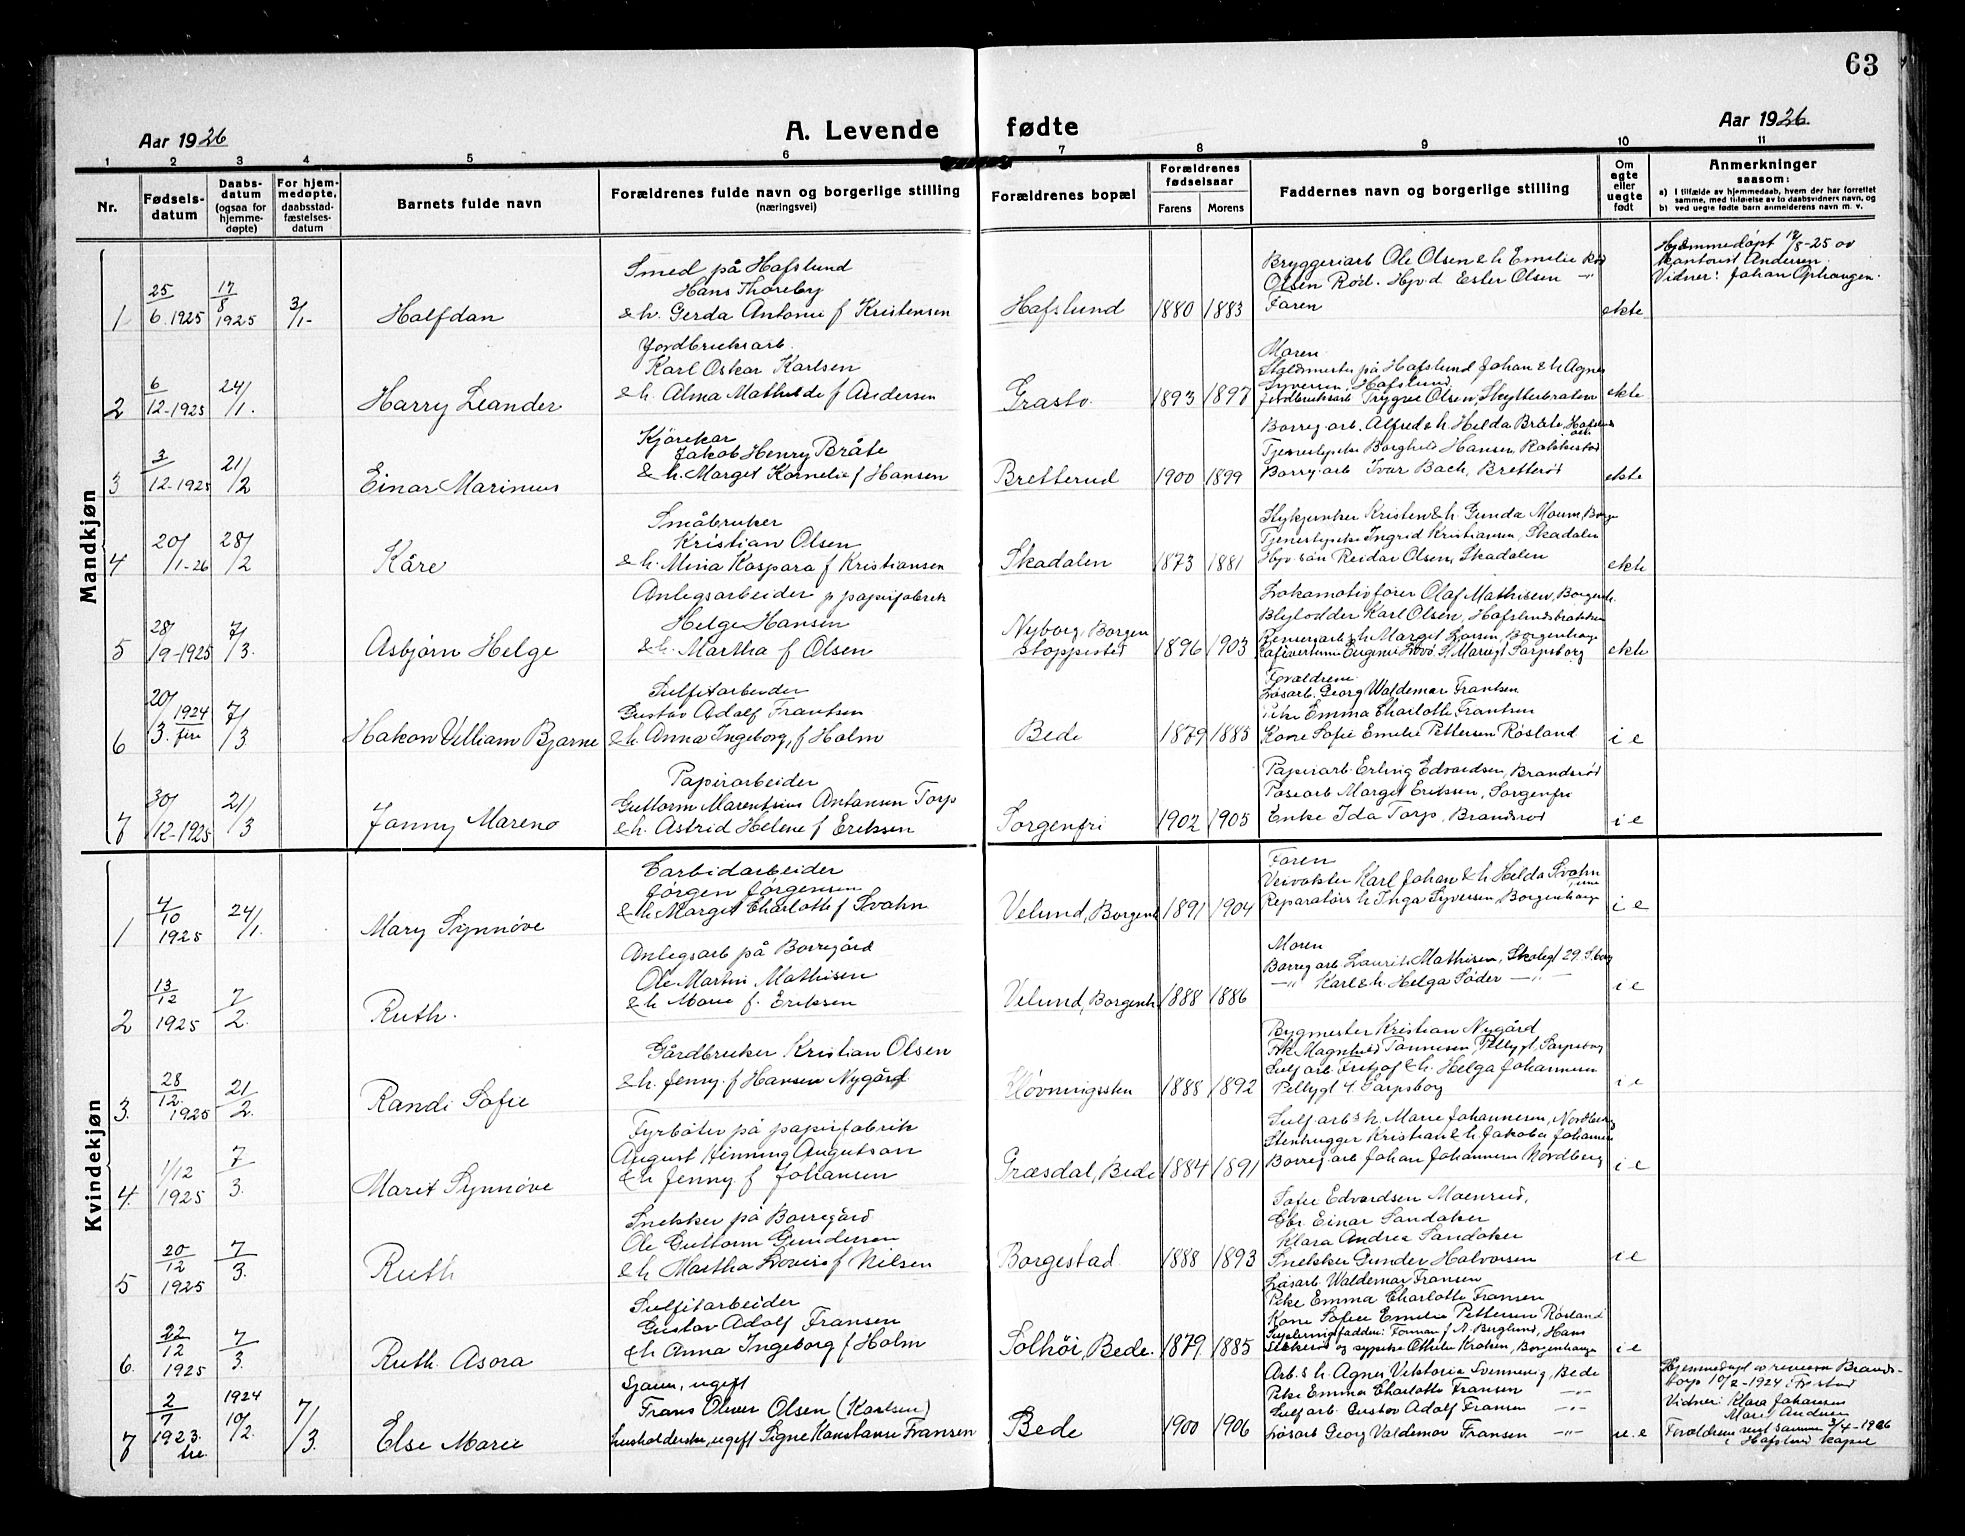 63
Aar 1926
A. Levende fødte
Aar 1926
1 2 3 4 5 6 7 8 9 10 11
Nr.
Fødsels-
datum
Daabs-
datum
(ogsaa for
hjemme-
døpte)
For hjem-
medøpte,
daabsstad-
fæstelses-
datum
Barnets fulde navn
Forældrenes fulde navn og borgerlige stilling
(næringsvei)
Forældrenes bopæl
Forældrenes
fødselsaar
Farens Morens
Faddernes navn og borgerlige stilling
Om
ægte
eller
uegte
født
Anmerkninger
saasom:
a) I tilfælde av hjemmedaab, hvem der har forrettet
samme, med tilføielse av to daabsvidners navn, og
b) ved uegte fødte barn anmelderens navn m. v.
Mandkjøn
1
25/6 1925
17/8 1925
3/1-
Halfdan
Smed på Hafslund
Hans Thoreby
& h. Gerda Antonie f Kristensen
Hafslund
1880 1883
Bryggeriarb Ole Olsen & h Emilie Rød
Olsen Rød. Hjv.d Ester Olsen -"-
Faren
ekte
Hjemmedøpt 17/8-25 av
Andersen.
Vidner: Johan Ophaugen.
2
6/12-1925
24/1.
Harry Leander
Jordbruksarb.
Karl Oskar Karlsen
& h. Alma Mathilde f Andersen
Grasto
1893 1897
Moren
Staldmester på Hafslund Johan & h Agnes
Syversen, Hafslund
Jordbruksarb Trygve Olsen, Skytterbraten
ekte
3
3/12-1925
21/2
Einar Marinius
Kjørekar
Jakob Henry Bråte
& h. Marget Kornelie f Hansen
Bretterud
1900 1899
Borreg.arb. Alfred & h. Helda Bråte, Hafslund
Tjenestepike Borghild Hansen, Rakkestad
Borreg.arb Ivar Bach, Bretterød
ekte
4
20/1-26
28/2
Kåre
Småbruker
Kristian Olsen
& h. Mina Kaspara f Kristiansen
Skadalen
1873 1881
Kristen & h. Gunda Moum, Borge
Tjenestepike Ingrid Kristiansen, Skadalen
Hjv sön Reidar Olsen, Skadalen
ekte
5
28/9-1925
7/3.
Asbjørn Helge
Anlegsarbeider p papirfabrik
Helge Hansen
& h. Martha f Olsen
Nyborg, Borgen
stoppested
1896 1903
Lokomotivfører Olaf Mathisen, Borgenh.
Blylodder Karl Olsen, Hafslundsbakken
Renseriarb & h Marget Larsen, Borgenhauge
Sarpsborg
ekte
6
20/3. 1924 fire
7/3
Hakon Villiam Bjarne
Sulfitarbeider
Gustav Adolf Frantsen
& h. Anna Ingeborg, f Holm
Bede
1879 1885
Forældrene
Løsarb. Georg Waldemar Frantsen
Pike Emma Charlotte Frantsen
Kone Sofie Emelie Pettersen Røsland
i e
7
30/12-1925
21/3
Jonny Mareno
Papirarbeider
Guttorm Marentsius Antonsen Torp
& h. Astrid Helene f Eriksen
Sorgenfri
1902 1905
Papirarb Erling Edvardsen, Brandsrød
Posearb Marget Eriksen, Sorgenfri
Enke Ida Torp, Brandsrød
i e
Kvindekjøn
1
4/10 1925
24/1.
Mary Synnøve
Carbidarbeider
Jørgen Jørgensen
& h Marget Charlotte f Svahn
Velund, Borgenh
1891 1904
Faren
Veivokter Karl Johan & h Helda Svahn
Reparatørs h Inga Syversen, Borgenhauge
i e
2
13/12 1925
7/2.
Ruth.
Anlegsarb på Borregård
Ole Martin Mathisen
& h Marie f. Eriksen
Velund, Borgenh.
1888 1886
Moren
Borreg arb Laurits Mathisen, Skolegt 29 S.borg
-"- Karl & h. Helga Søder -"-
i e
3.
28/12. 1925
21/2.
Randi Sofie
Gårdbruker Kristian Olsen
& h. Jenny. f Hansen Nygård
Kløvningssten
1888 1892
Bygmester Kristian Nygård
Frk Magnhild Tannesen, Pellygt, Sarpsborg
Sulf arb Fritjof & h. Helga Johannesen
Pellygt 4. Sarpsborg
i e
4.
1/12 1925
7/3.
Marit Synnøve
Fyrbøter på papirfabrik
August Henning Augutson
& h Jenny f Johansen
Græsdal, Bede
1884 1891
Sulf arb s h. Marie Johannesen, Nordberg
Stenhugger Kristian & h. Jakoba Johannesen
Borreg arb Johan Johannesen Nordberg
i e
5
20/12 1925
7/3.
Ruth
Snekker på Borregård
Ole Guttorm Gundersen
& h Martha Lovise f Nilsen
Borgestad
1888 1893
Sofie Edvardsen Moenrud,
Gbr. Einar Sandaker
Klara Andrea Sandaker
Snekker Gunder Halvorsen
i e
6.
22/12 1925
7/3.
Ruth Asora
Sulfitarbeider
Gustav Adolf Fransen
& h Anna Ingeborg f Holm
Solhöi, Bede.
1879 1885
Løsarb Waldemar Fransen
Pike Emma Charlotte Fransen
Kone Sofie Emelie Pettersen Røsland
Forman f A. Berglund, Hans
og sypike Othilie Kraken, Borgenhauge
i e
7
2/7 1923. tre
1924 10/2.
7/3.
Else Marie
Sjøm, ugift
Frans Oliver Olsen (Karlsen)
husholderske, ugift Signe Konstanse Fransen
Bede
1900 1906
Arb. s h. Agnes Viktoria Svennevig, Bede
Pike Emma Charlotte Fransen -"-
Sulf arb Gustav Adolf Fransen -"-
Løsarb Georg Valdemar Fransen -"-
u. e
Hjemmedøpt av Brands-
torp 10/2-1924
Vidner: Klara Johansen
Marie Andersen
Forældrene viet samme 3/4-1926
i Hafslund Kapel